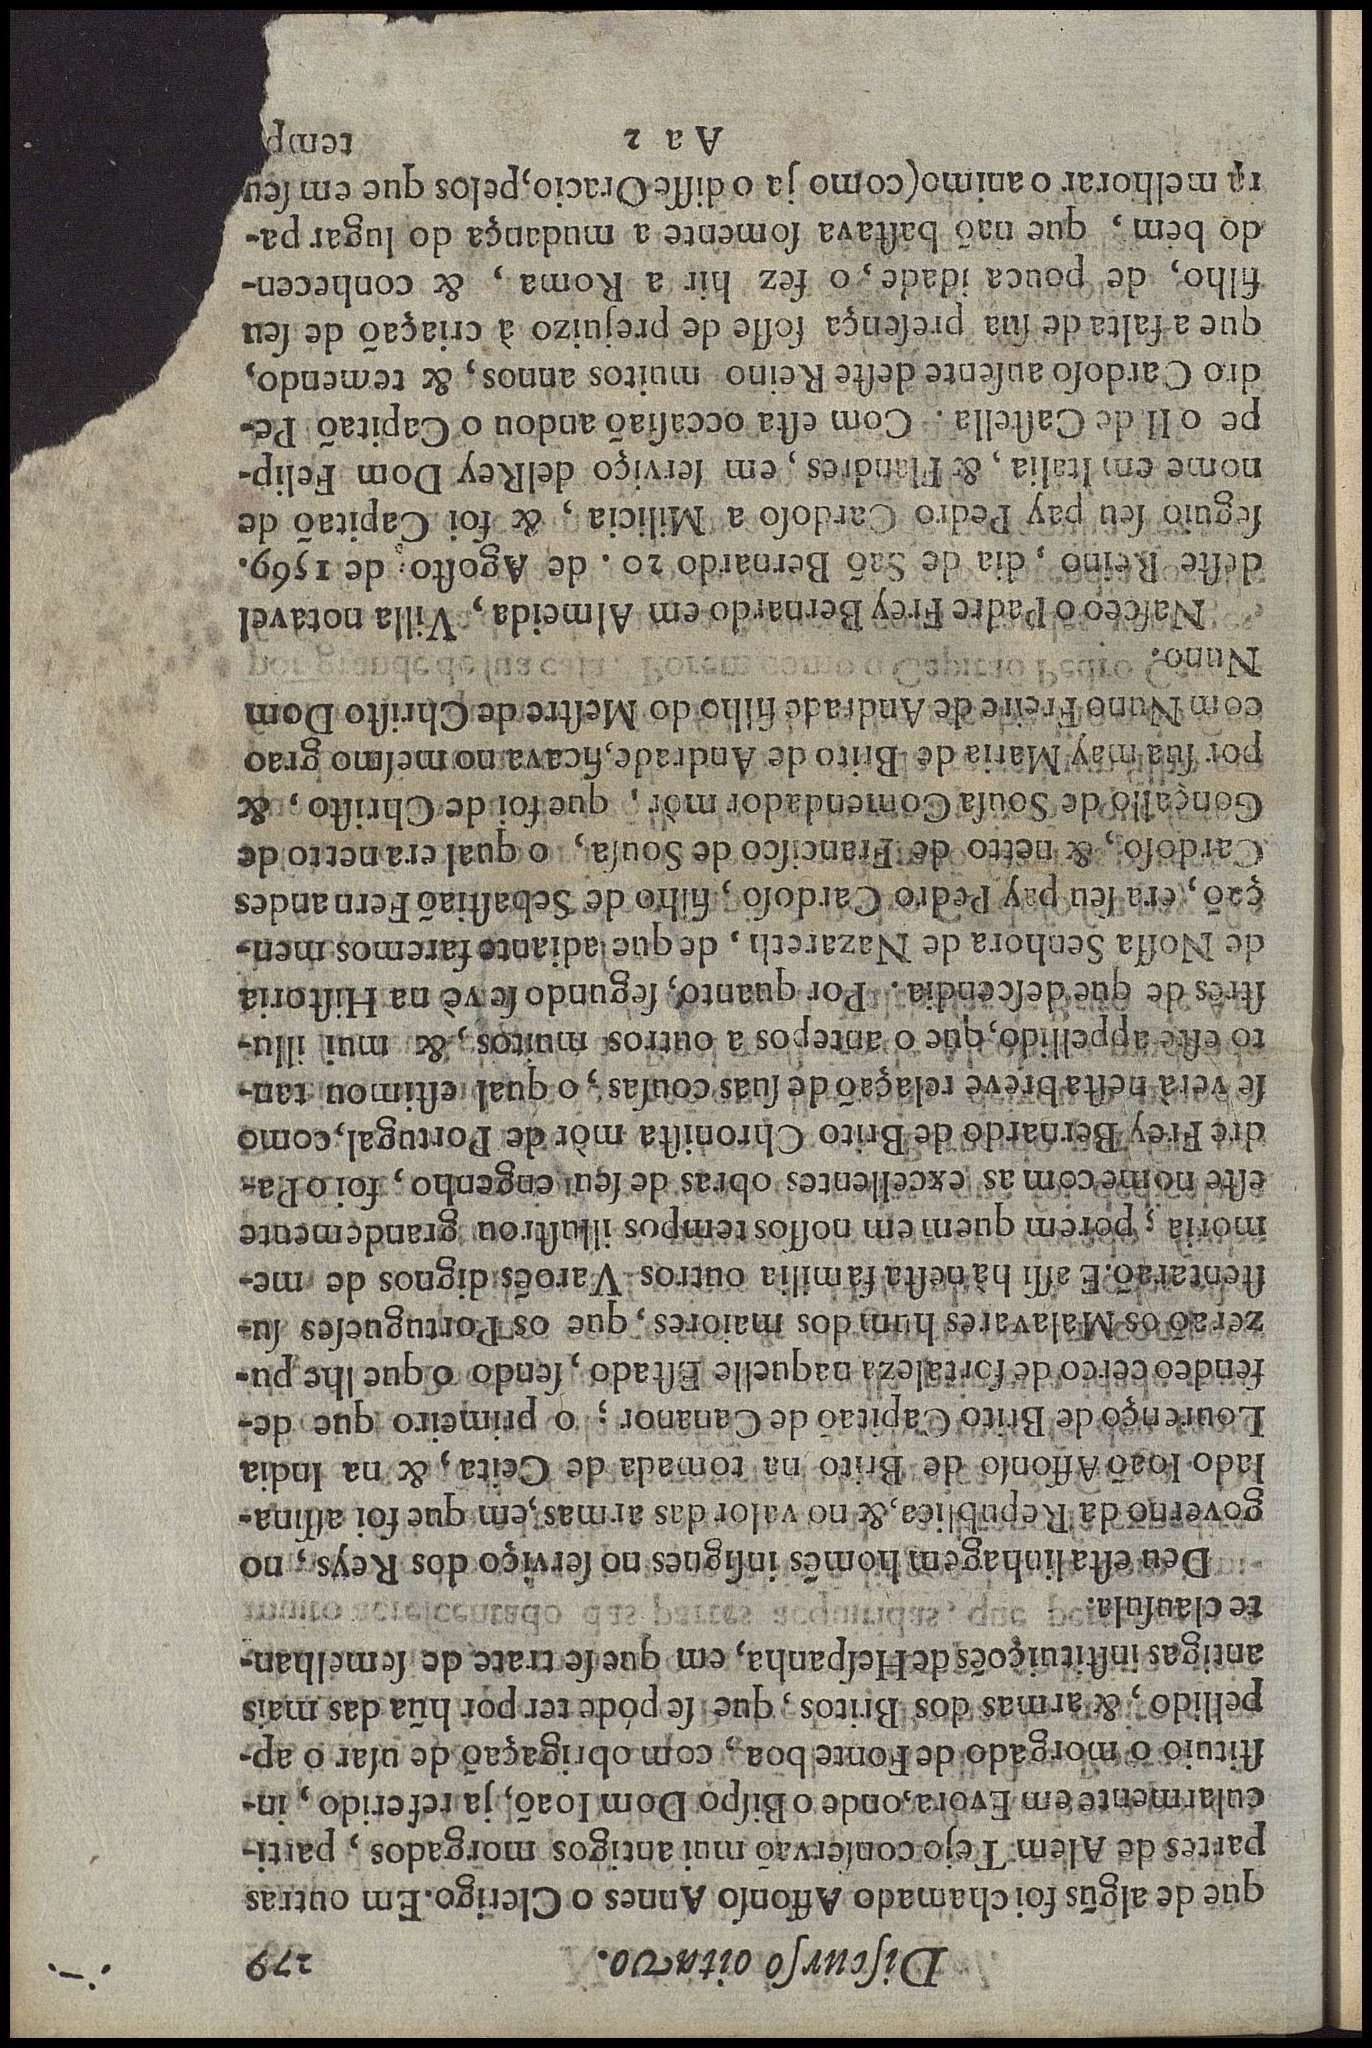 Diſcurſo oitavo. 279
que de algũs foi chamado Affonſo Annes o Clerigo. Em outras
partes de Alem Tejo conſervaõ mui antigos morgados, parti-
cularmente em Evora, onde o Biſpo Dom Ioaõ, ja referido, in-
ſtituio o morgado de Fonte boa, com obrigaçaõ de uſar o ap-
pellido, & armas dos Britos, que ſe póde ter por hũa das mais
antigas inſtituiçoẽs de Heſpanha, em que ſe trate de ſemelhan-
te clauſula.
Deu eſta linhagem homẽs inſignes no ſerviço dos Reys, no
governo da Republica, & no valor das armas, em que foi aſſina-
lado Ioaõ Affonſo de Brito na tomada de Ceita, & na India
Lourenço de Brito Capitaõ de Cananor; o primeiro que de-
fendeo cerco de fortaleza naquelle Eſtado, ſendo o que lhe pu-
zeraõ os Malavares hum dos maiores, que os Portugueſes ſu-
ſtentaraõ. E aſſi hà neſta familia outros Varoẽs dignos de me-
moria; porem quem em noſſos tempos illuſtrou grandemente
eſte nome com as excellentes obras de ſeu engenho, foi o Pa-
dre Frey Bernardo de Brito Chroniſta mòr de Portugal, como
ſe verà neſta breve relaçaõ de ſuas couſas; o qual eſtimou tan-
to eſte appellido, que o antepos a outros muitos, & mui illu-
ſtrẽs de que deſcendia. Por quanto, ſegundo ſe vè na Hiſtoria
de Noſſa Senhora de Nazareth, de que adiante faremos men-
çaõ, era ſeu pay Pedro Cardoſo, filho de Sebaſtiaõ Fernandes
Cardoſo, & netto de Franciſco de Souſa, o qual era netto de
Gonçallo de Souſa Comendador mòr, que foi de Chriſto, &
por ſua mãy Maria de Brito de Andrade, ficava no meſmo grao
com Nuno Freire de Andrade filho do Meſtre de Chriſto Dom
Nuno.
Naſceo o Padre Frey Bernardo em Almeida, Villa notavel
deſte Reino, dia de Saõ Bernardo 20. de Agoſto de 1569.
ſeguio ſeu pay Pedro Cardoſo a Milicia, & foi Capitaõ de
nome em Italia, & Flandres, em ſerviço delRey Dom Felip-
pe o II. de Caſtella. Com eſta occaſiaõ andou o Capitaõ Pe-
dro Cardoſo auſente deſte Reino muitos annos, & temendo,
que a falta de ſua preſença foſſe de prejuizo à criaçaõ de ſeu
filho, de pouca idade, o fez hir a Roma, & conhecen-
do bem, que naõ baſtava ſomente a mudança do lugar pa-
ra melhorar o animo (como ja o diſſe Oracio, pelos que em ſeu
Aa 2 temp